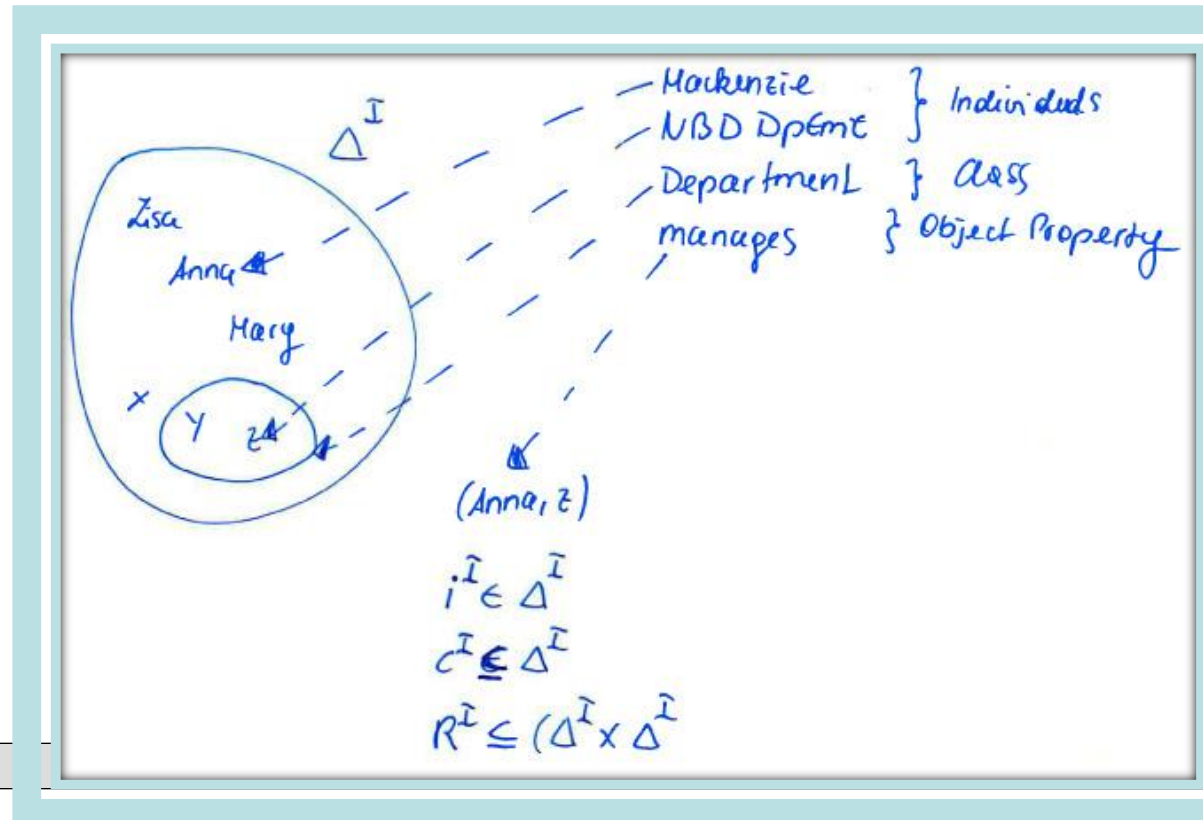 Δ^I
Lisa
Anna
Mary
x
y z
Mackenzie
NBD Dptmt } Individuals
Department } Class
manages } Object Property
(Anna, z)
i^I ∈ Δ^I
C^I ⊆ Δ^I
R^I ⊆ (Δ^I x Δ^I